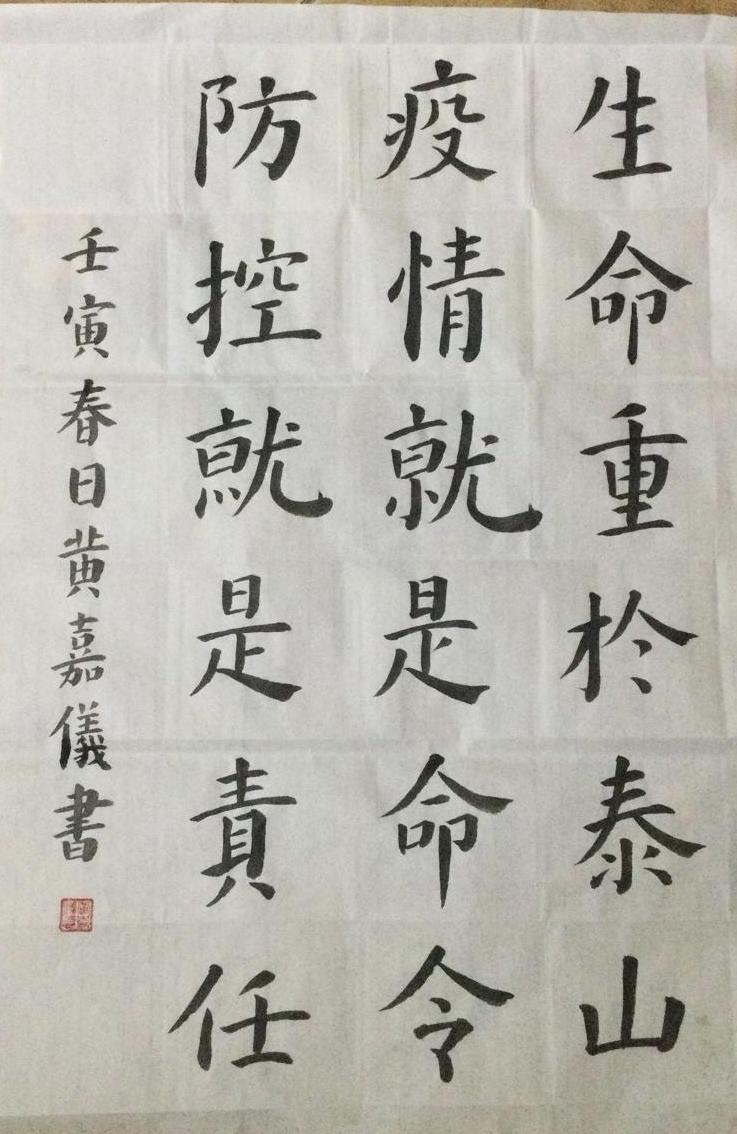 生命重於泰山
疫情就是命令
防控就是責任
壬寅春日黄嘉儀書